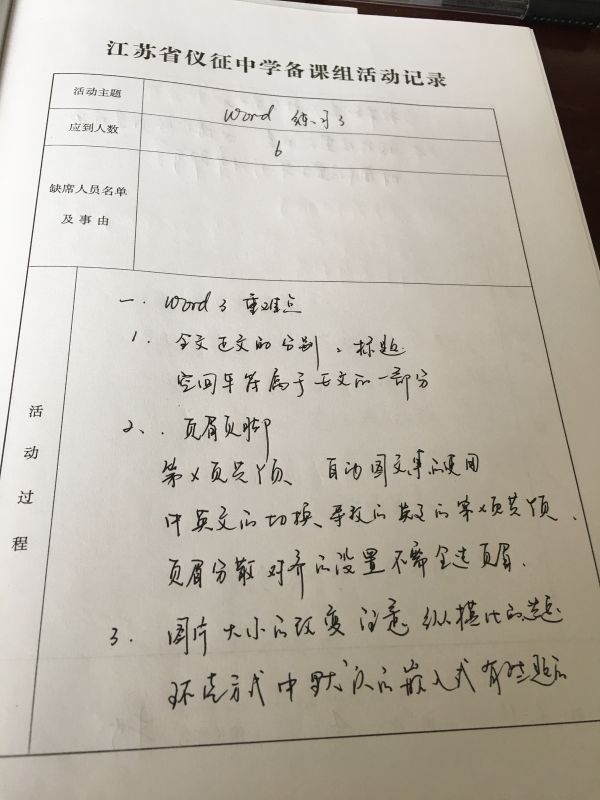 江苏省仪征中学备课组活动记录
活动主题
Word 练习3
应到人数
6
缺席人员名单
及事由
活动过程
一. Word 3 重难点
1. 全文正文的分别、标题
空回车符属于正文的一部分
2、. 页眉页脚
第X页共Y页、 自动图文集的使用
中英文的切换、导致的英文的第X页共Y页、
页眉分散对齐的设置不需全选页眉.
3. 图片大小的改变 注意 纵横比的
环绕方式中默认的嵌入式 有些题的